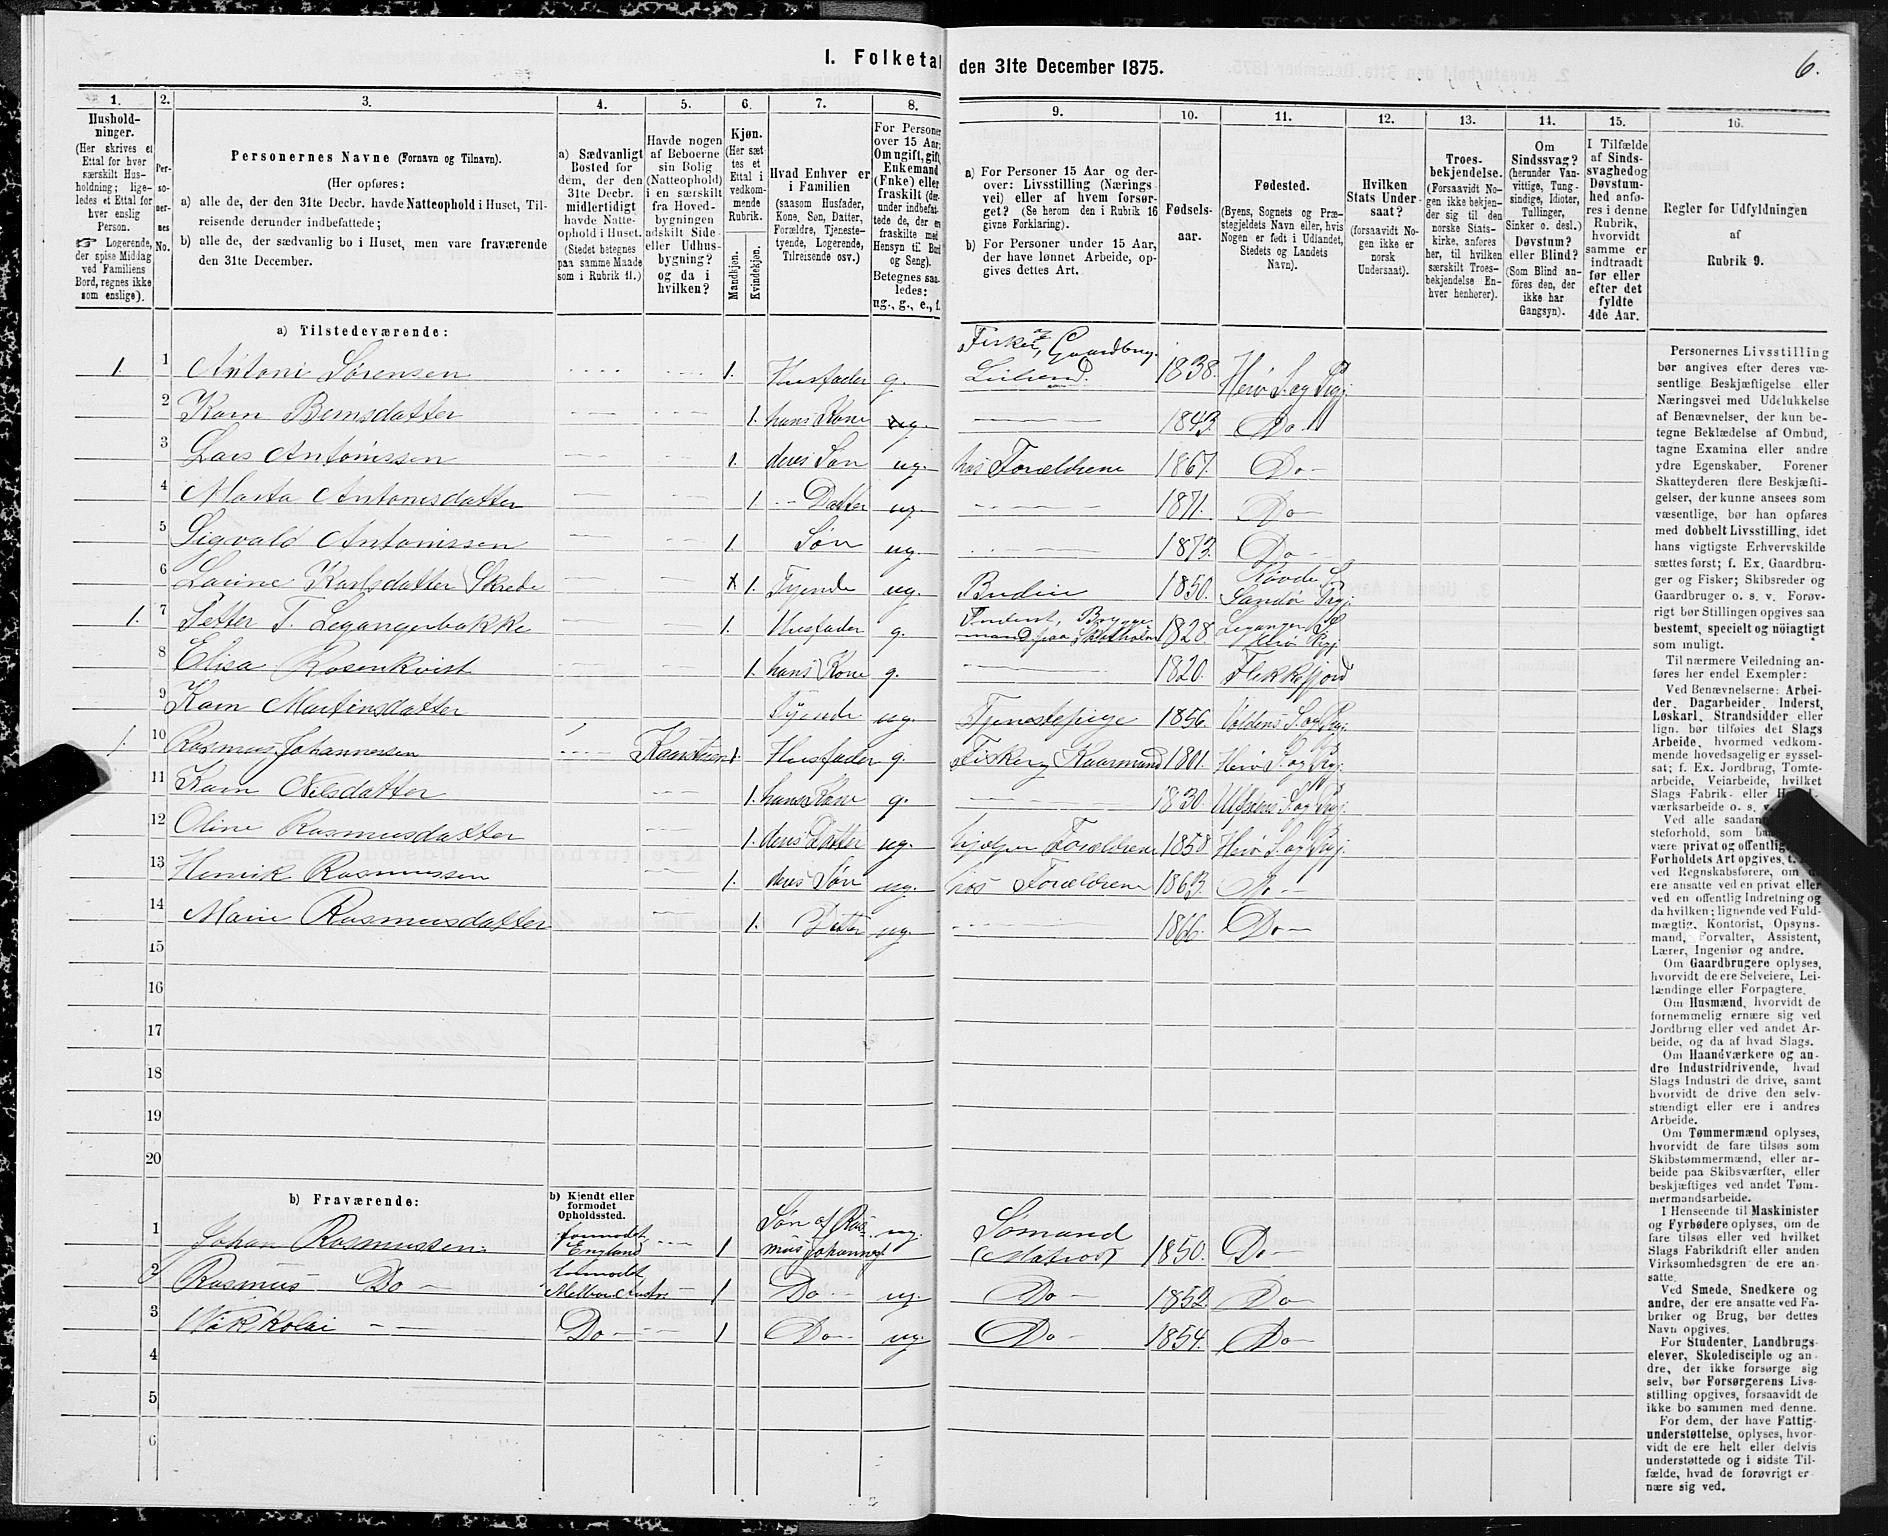 I. Folketal den 31te December 1875.
6.
1.
Hushold-
ninger.
(Her skrives et
Ettal for hver
særskilt Hus-
holdning; lige-
ledes et Ettal for
hver enslig
Person.
Logerende,
der spise Middag
ved Familiens
Bord, regnes ikke
som enslige).
2.
Per-
so-
ner-
nes
No.
3.
Personernes Navne (Fornavn og Tilnavn).
(Her opføres:
a) alle de, der den 31te Decbr. havde Natteophold i Huset, Til-
reisende derunder indbefattede;
b) alle de, der sædvanlig bo i Huset, men vare fraværende
den 31te December.
4.
a) Sædvanligt
Bosted for
dem, der den
31te Decbr.
midlertidigt
havde Natte-
ophold i Huset.
(Stedet betegnes
paa samme Maade
som i Rubrik 11.)
5.
Havde nogen
af Beboerne
sin Bolig
(Natteophold)
i en særskilt
fra Hoved-
bygningen
adskilt Side-
eller Udhus-
bygning?
og da i
hvilken?
6.
Kjøn.
(Her sæt-
tes et
Ettal i
vedkom-
mende
Rubrik.
Mandkjøn.
Kvindekjøn.
7.
Hvad Enhver er
i Familien
(saasom Husfader,
Kone, Søn, Datter,
Forældre, Tjeneste-
tyende, Logerende,
Tilreisende osv.)
8.
For Personer
over 15 Aar:
Om ugift, gift,
Enkemand
(Enke) eller
fraskilt (der-
under indbefat-
tede de, der er
fraskilte med
Hensyn til Bord
og Seng).
Betegnes saa-
ledes:
ug., g., e., f.
9.
a) For Personer 15 Aar og der-
over: Livsstilling (Nærings
vei) eller af hvem forsør-
get? (Se herom den i Rubrik 16
givne Forklaring).
b) For Personer under 15 Aar,
der have lønnet Arbeide, op-
gives dettes Art.
10.
Fødsels-
aar.
11.
Fødested.
(Byens, Sognets og Præ-
stegjeldets Navn eller, hvis
Nogen er født i Udlandet,
Stedets og Landets
Navn).
12.
Hvilken
Stats Under-
saat?
(forsaavidt No-
gen ikke er
norsk
Undersaat).
13.
Troes-
bekjendelse.
(Forsaavidt No-
gen ikke bekjen-
der sig til den
norske Stats-
kirke, anføres
her, til hvilken
særskilt Troes-
bekjendelse En-
hver henhører).
14.
Om
Sindssvag?
(herunder Van-
vittige, Tung-
sindige, Idioter,
Tullinger,
Sinker o. desl.)
Døvstum?
eller Blind?
(Som Blind an-
föres den, der
ikke har
Gangsyn).
15.
I Tilfælde
af Sinds-
svaghed og
Døvstum-
hed anfø-
res i denne
Rubrik,
hvorvidt
samme er
indtraadt
før eller
efter det
fyldte
4de Aar.
16.
Regler for Udfyldningen
af
Rubrik 9.
a) Tilstedeværende:
1 1 Antoni Sørensen 1. Husfader g. Fisker og Gaardbrug. Leilend. 1838. Herø S. og Pgj.
2 Karn Bernsdatter 1. hans Kone ug. 1843 Do
3 Lars Antonissen 1. deres Søn ug. hos Forældrene 1867. Do
4 Marta Antonisdatter 1. Datter ug. 1871. Do
5 Sigvald Antonissen 1. Søn ug. 1873. Do
6 Laurine Karlsdatter Skrede x 1. Tyende ug. Budeie 1850. Røvde S. Sandø Pgj.
1. 7 Petter T. Legangerbakke 1. Husfader g. Inderst, Brygge mand paa 1828 Leganger S. Herø Pgj.
8 Elisa Rosenkvist 1. hans Kone g. 1820. Flekkefjord
9 Karn Martinsdatter Tyende ug. Tjenestepige 1856. Voldens S. og Pgj.
1. 10 Rasmus Johannessen 1. Husfader g. Fisker og Kaarmand 1801 Herø S. og Pgj.
11 Karn Nilsdatter 1. hans Kone g. 1830. Ulfstens S. og Pgj.
12 Oline Rasmusdatter 1. deres Datter ug. hjælper Forældrene 1858 Herø S. og Pgj.
13 Henrik Rasmussen 1. deres Søn ug. hos Forældrene 1863. Do
14 Marie Rasmusdatter 1. Datter ug. 1866. Do
15
16
17
18
19
20
b) Fraværende:
b) Kjendt eller
formodet
Opholdssted.
1 Johan Rasmussen. formodt. England 1 Søn af Rasmus Johannes ug. Sømand (Matros) 1850. Do
2 Rasmus Do formodt. 1 Do ug. Do 1852. Do
3 Nikkolai Do 1 Do ug. Do 1854. Do
4
5
6
Personernes Livsstilling
bør angives efter deres væ-
sentlige Beskjæftigelse eller
Næringsvei med Udelukkelse
af Benævnelser, der kun be-
tegne Beklædelse af Ombud,
tagne Examina eller andre
ydre Egenskaber. Forener
Skatteyderen flere Beskjæfti-
gelser, der kunne ansees som
væsentlige, bør han opføres
med dobbelt Livsstilling, idet
hans vigtigste Erhvervskilde
sættes først; f. Ex. Gaardbru-
ger og Fisker; Skibsreder og
Gaardbruger o. s. v. Forøv-
rigt bør Stillingen opgives saa
bestemt, specielt og nöiagtigt
som muligt.
Til nærmere Veiledning an-
føres her endel Exempler:
Ved Benævnelserne: Arbei-
der, Dagarbeider, Inderst,
Løskarl, Strandsidder eller
lign. bør tilføies det Slags
Arbeide, hvormed vedkom-
mende hovedsagelig er syssel-
sat; f. Ex. Jordbrug, Tomte-
arbeide, Veiarbeide, hvilket
Slags Fabrik- eller
værksarbeide o. s. v.
Ved alle saadan
steforhold, som
være privat og offentlig
Forholdets Art opgives,
ved Regnskabsførere, om
ere ansatte ved en privat eller
ved en offentlig Indretning og
da hvilken; lignende ved Fuld-
mægtig, Kontorist, Opsyns-
mand, Forvalter, Assistent,
Lærer, Ingeniør og andre.
Om Gaardbrugere oplyses,
hvorvidt de ere Selveiere, Lei-
lændinge eller Forpagtere.
Om Husmænd, hvorvidt de
fornemmelig ernære sig ved
Jordbrug eller ved andet Ar-
beide, og da af hvad Slags.
Om Haandværkere og an-
dre Industridrivende, hvad
Slags Industri de drive, samt
hvorvidt de drive den selv-
stændigt eller ere i andres
Arbeide.
Om Tømmermænd oplyses,
hvorvidt de fare tilsøs som
Skibstømmermænd, eller ar-
beide paa Skibsværfter, eller
beskjæftiges ved andet Tøm-
mermandsarbeide.
I Henseende til Maskinister
og Fyrbødere oplyses, om de
fare tilsøs eller ved hvilket
Slags Fabrikdrift eller anden
Virksomhedsgren de ere an-
satte.
Ved Smede, Snedkere og
andre, der ere ansatte ved Fa-
briker og Brug, bør dettes
Navn opgives.
For Studenter, Landbrugs-
elever, Skoledisciple og an-
dre, der ikke forsørge sig
selv, bør Forsørgerens Livs-
stilling opgives, forsaavidt de
ikke bo sammen med denne.
For dem, der have Fattig-
understøttelse, oplyses, hvor-
vidt de ere helt eller delvis
understøttede og i sidste Til-
fælde, hvad de forøvrigt er-
nære sig ved.